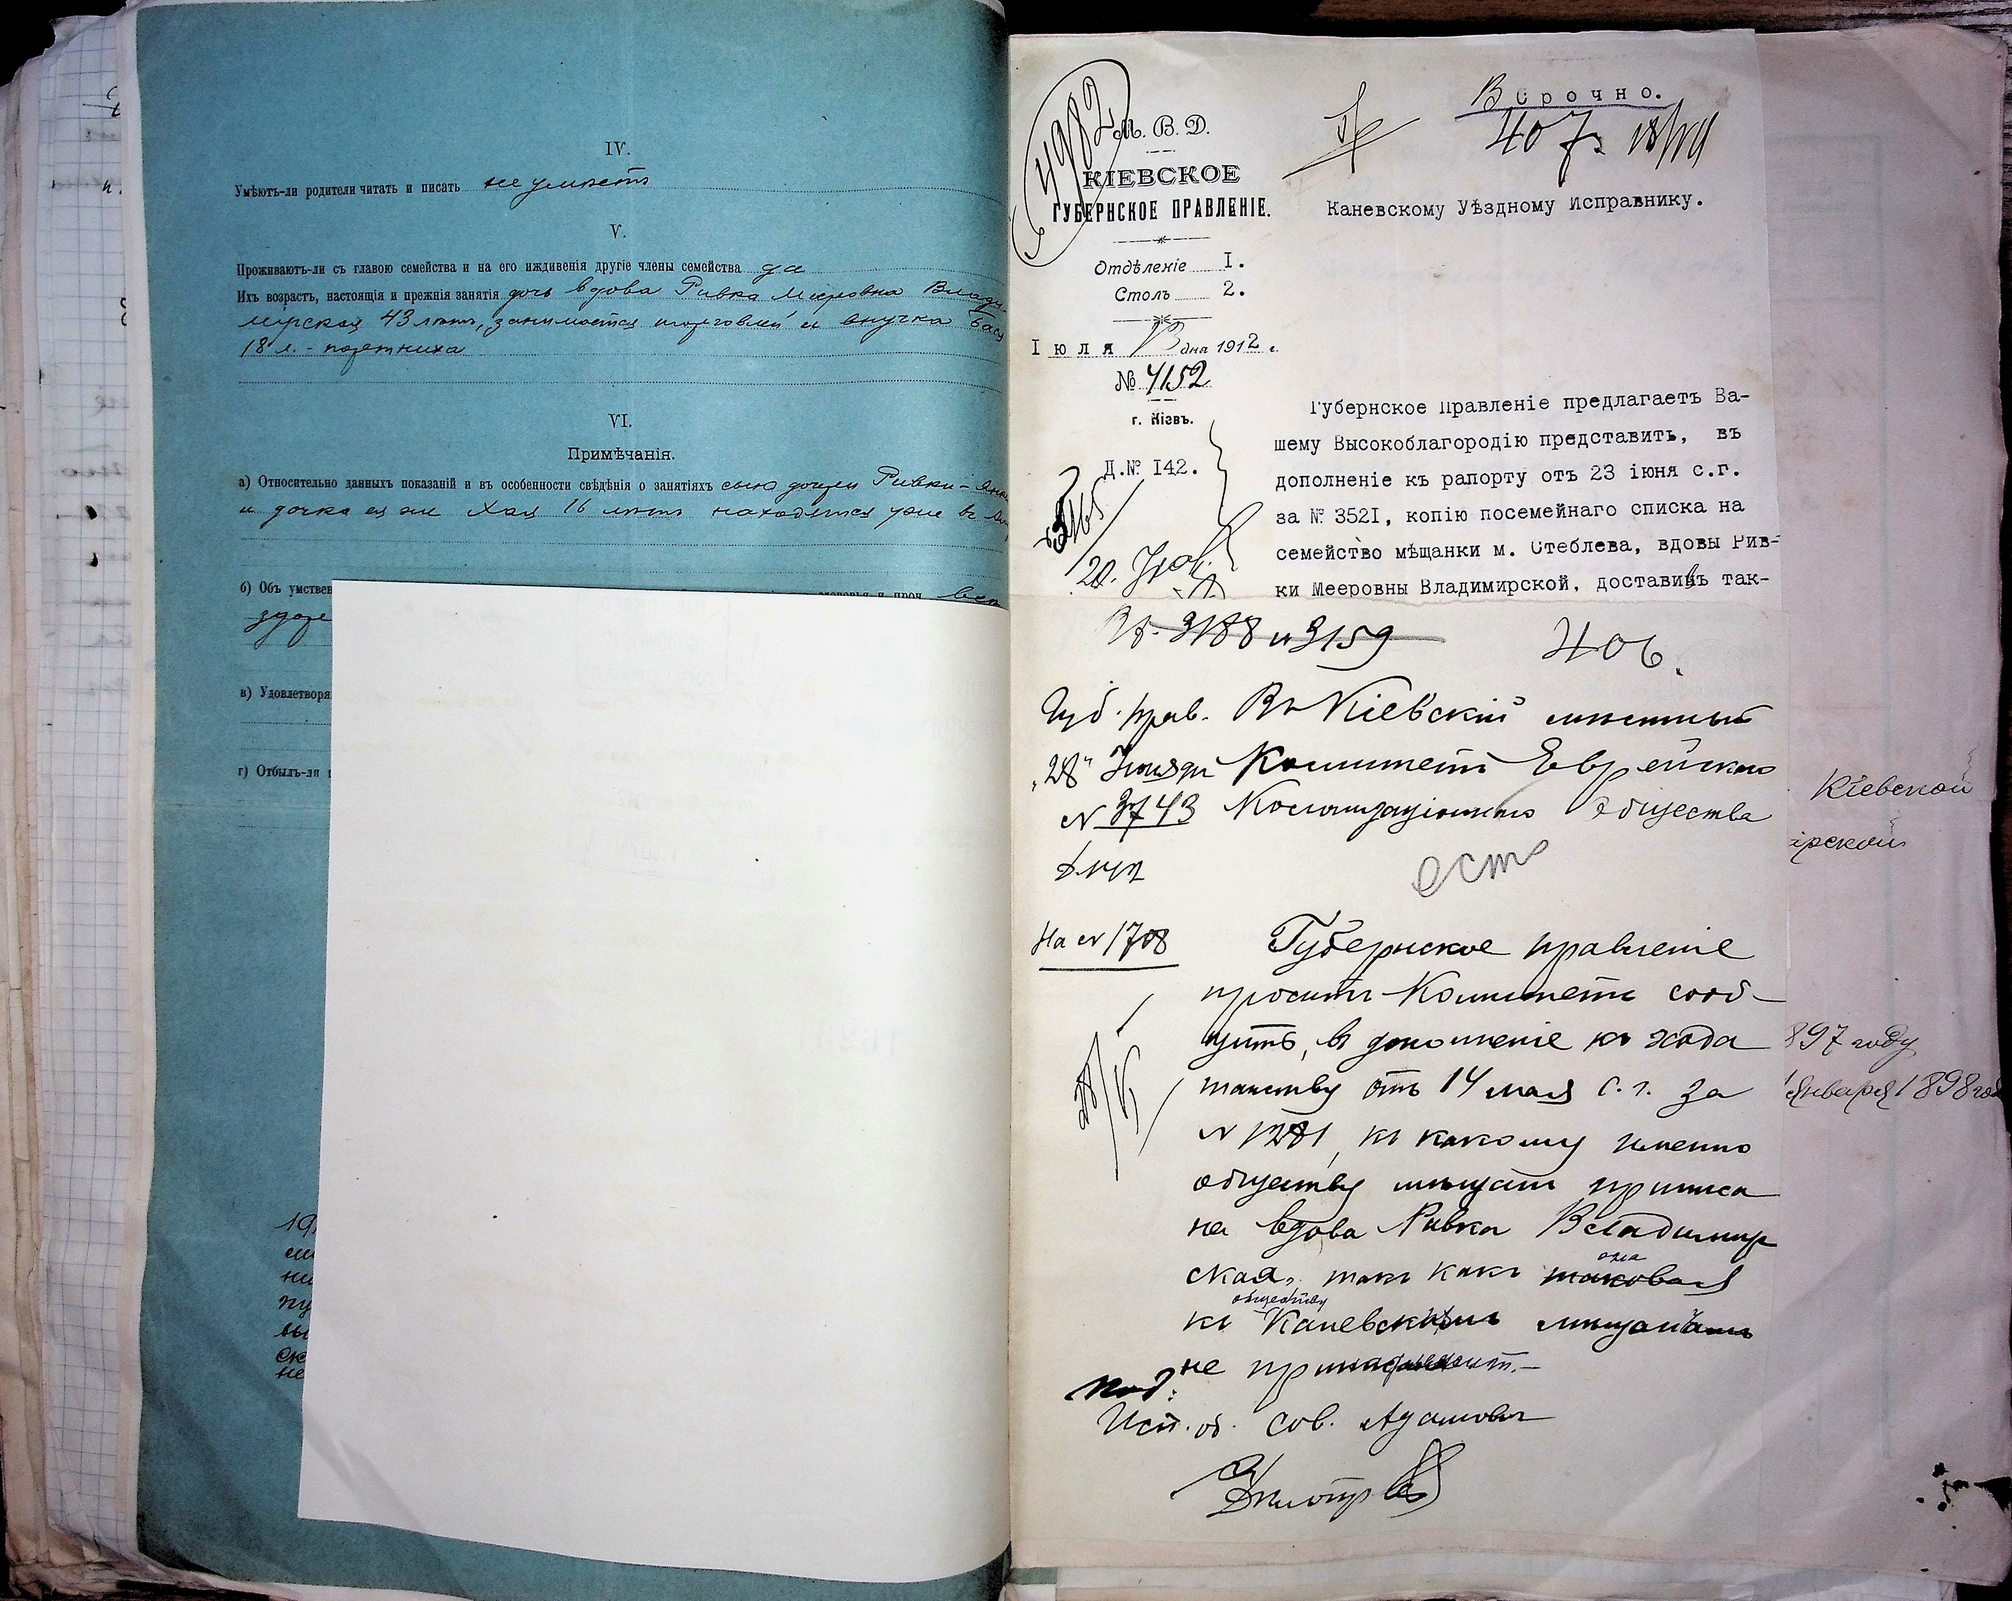 IV.
Умѣютъ-ли родители читать и писать не умѣютъ
V.
Проживаютъ-ли съ главою семейства и на его иждивенія другіе члены семейства да
Ихъ возрастъ, настоящія и прежнія занятія дочь вдова Ривка Мееровна Влади-
мірская 43 лѣтъ, занимается торговлей и внучка Бася
18 л. -
VI.
Примѣчанія.
а) Относительно данныхъ показаній и въ особенности свѣдѣнія о занятіяхъ сынъ дочери Ривки -
и дочка ея же Хая 16 лѣтъ находятся уже въ
б) Объ умствен
здоро
в) Удовлетворя
г) Отбылъ-ли
4982
М. В. Д.
КІЕВСКОЕ
ГУБЕРНСКОЕ ПРАВЛЕНІЕ.
Отдѣленіе I.
Столъ 2.
Іюля 13 дня 1912 г.
№ 4152
г. Кіевъ.
Д.№ 142.
Срочно.
407
Каневскому Уѣздному Исправнику.
Губернское Правленіе предлагаетъ Ва-
шему Высокоблагородію представить, въ
дополненіе къ рапорту отъ 23 іюня с.г.
за № 3521, копію посемейнаго списка на
семейство мѣщанки м. Стеблева, вдовы Рив-
ки Мееровны Владимирской, доставивъ так-
3188 и 3159
406.
Губ. прав. Въ Кіевскій мѣстный
"28" Комитетъ Еврейскаго
N 3743 Колонизаціоннаго Общества
есть
На N 1708
Губернское правленіе
проситъ Комитетъ сооб-
щить, въ дополненіе къ хода
тайству отъ 14 мая с. г. за
N 1281, къ какому именно
обществу мѣщанъ приписа
на вдова Ривка Владимир
ская, такъ какъ таковая
она
къ Каневскимъ мѣщанамъ
обществу
не
Исп. об. сов. Адамовичъ
Кіевской
ірской
897 году
Января 1898 год